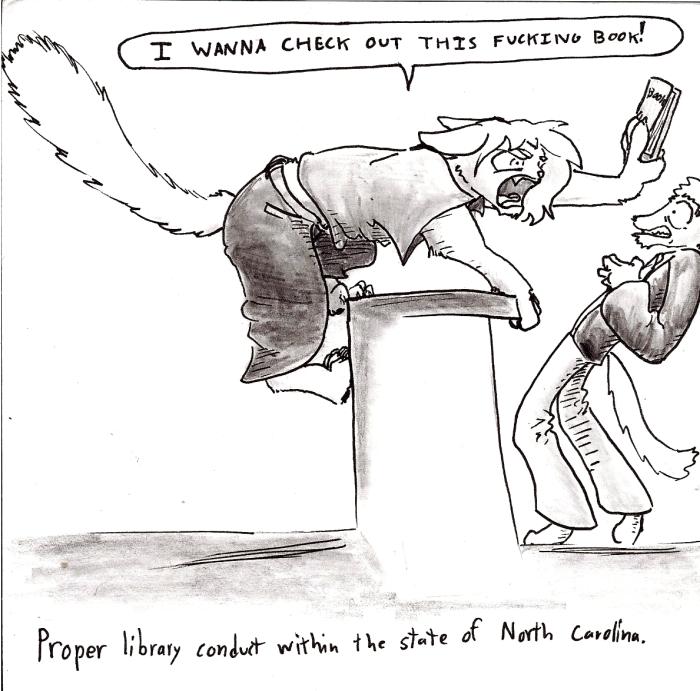 I WANNA CHECK OUT THIS FUCKING BOOK!
BOOK
Proper library conduct within the state of North Carolina.